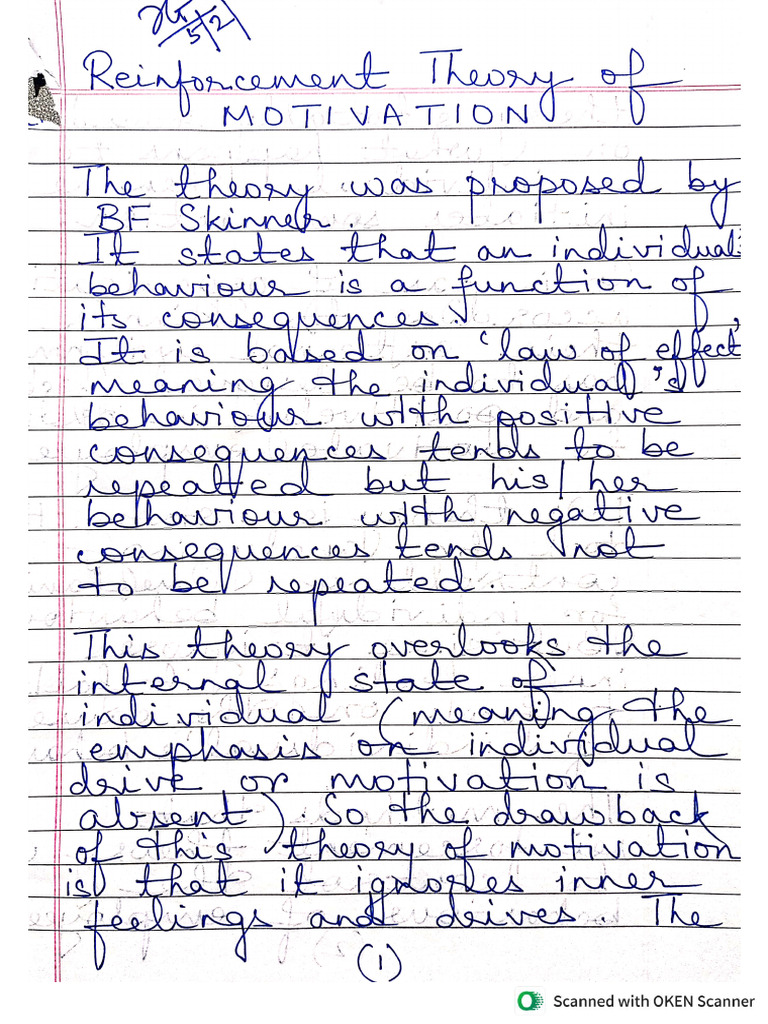 5/2
Reinforcement Theory of
MOTIVATION
The theory was proposed by
BF Skinner.
It states that an individual
behaviour is a function of
its consequences.
It is based on 'law of effect'
meaning the individual's
behaviour with positive
consequences tends to be
repeatted but his/her
behaviour with negative
consequences tends not
to be repeated.
This theory overlooks the
internal state of
individual (meaning the
emphasis on individual
drive or motivation is
absent). So the drawback
of this theory of motivation
is that it ignores inner
feelings and drives. The
(1)
Scanned with OKEN Scanner